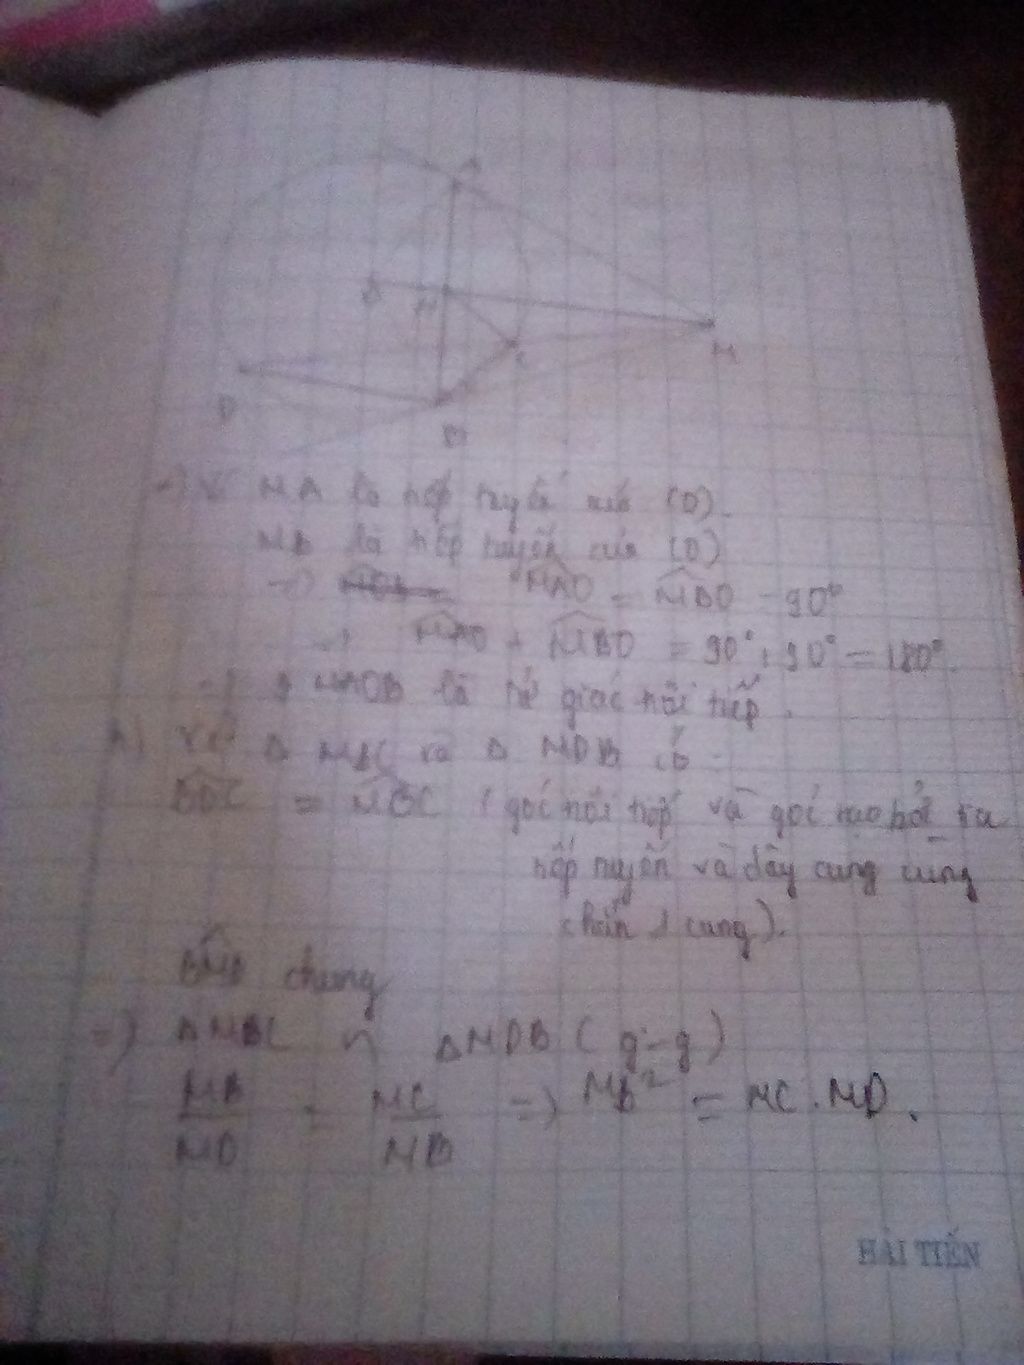 A
O
H
C
M
D
B
Vì MA là tiếp tuyến của (O).
MB là tiếp tuyến của (O)
=> MAO = MBO = 90°
=> MAO + MBO = 90° + 90° = 180°.
=> MAOB là tứ giác nội tiếp.
Δ MBC và Δ MDB có
BDC = MBC (góc nội tiếp và góc tạo bởi tia
tiếp tuyến và dây cung cùng
chắn 1 cung).
BMD chung
=> ΔMBC ∽ ΔMDB (g-g)
MB/MD = MC/MB => MB² = MC.MD.
HẢI TIẾN